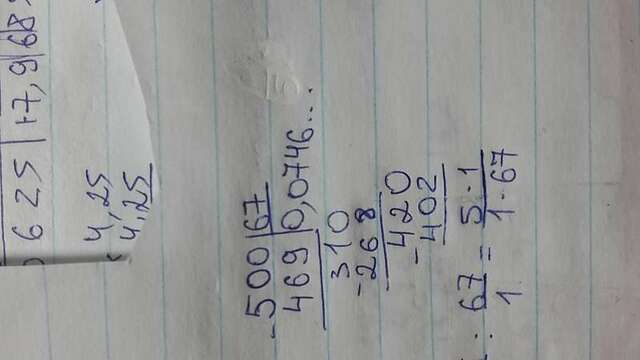 625 17,968
4,25
4,25
-500 67
469 0,0746...
310
-268
-420
402
: 67/1 = 5·1/1·67